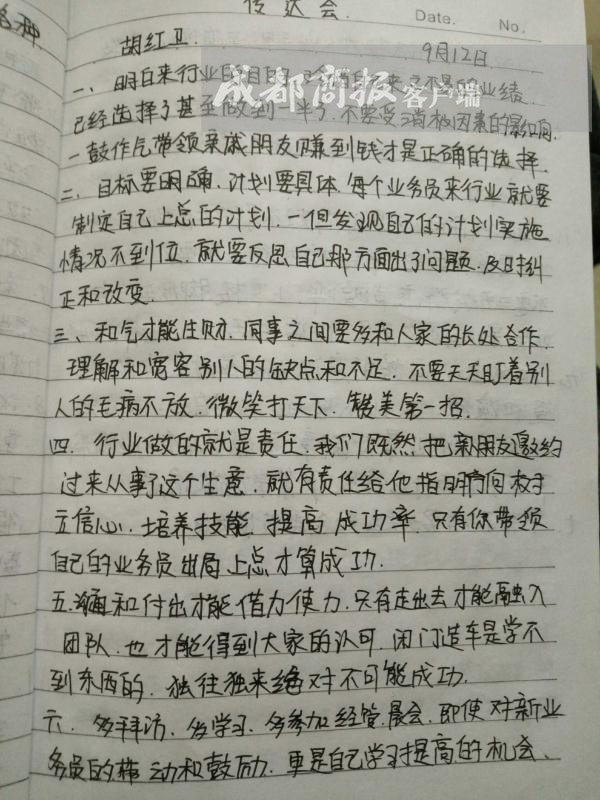 传达会. Date. No.
胡红卫. 9月12日
一、明白来行业的目的, 业绩
成都商报客户端
已经选择了甚至做到一半了.不要受消极因素的影响.
一鼓作气带领亲戚朋友赚到钱才是正确的选择.
二、目标要明确.计划要具体.每个业务员来行业就要
制定自己上总的计划.一但发现自己的计划实施
情况不到位.就要反思自己那方面出了问题.及时纠
正和改变.
三、和气才能生财.同事之间要多和人家的长处合作.
理解和宽容别人的缺点和不足.不要天天盯着别
人的毛病不放.微笑打天下.赞美第一招.
四.行业做的就是责任.我们既然把亲朋友邀约
过来从事了这个生意.就有责任给他指明方向树
立信心.培养技能.提高成功率.只有你带领
自己的业务员出局上总才算成功.
五.沟通和付出才能借力使力.只有走出去才能融入
团队.也才能得到大家的认可.闭门造车是学不
到东西的.独往独来绝对不可能成功.
六.多拜访.多学习.多参加经管.晨会.即使对新业
务员的带动和鼓励.更是自己学习提高的机会、